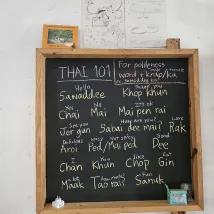 THAI 101
For politeness
word + krap/ka
Hello
Thank you
Sawaddee
Khop khun
Yes
No
It's ok
Chai
Mai
Mai pen rai
See you
How are you?
Love
Jer gun
Sabai dee mai?
Rak
Delicious
Spicy/Not spicy
Good
Aroi
Ped/Mai ped
Dee
I
You
Like
Eat
Chan
Khun
Chop
Gin
How much?
Fun
Maak
Tao rai
Sanuk